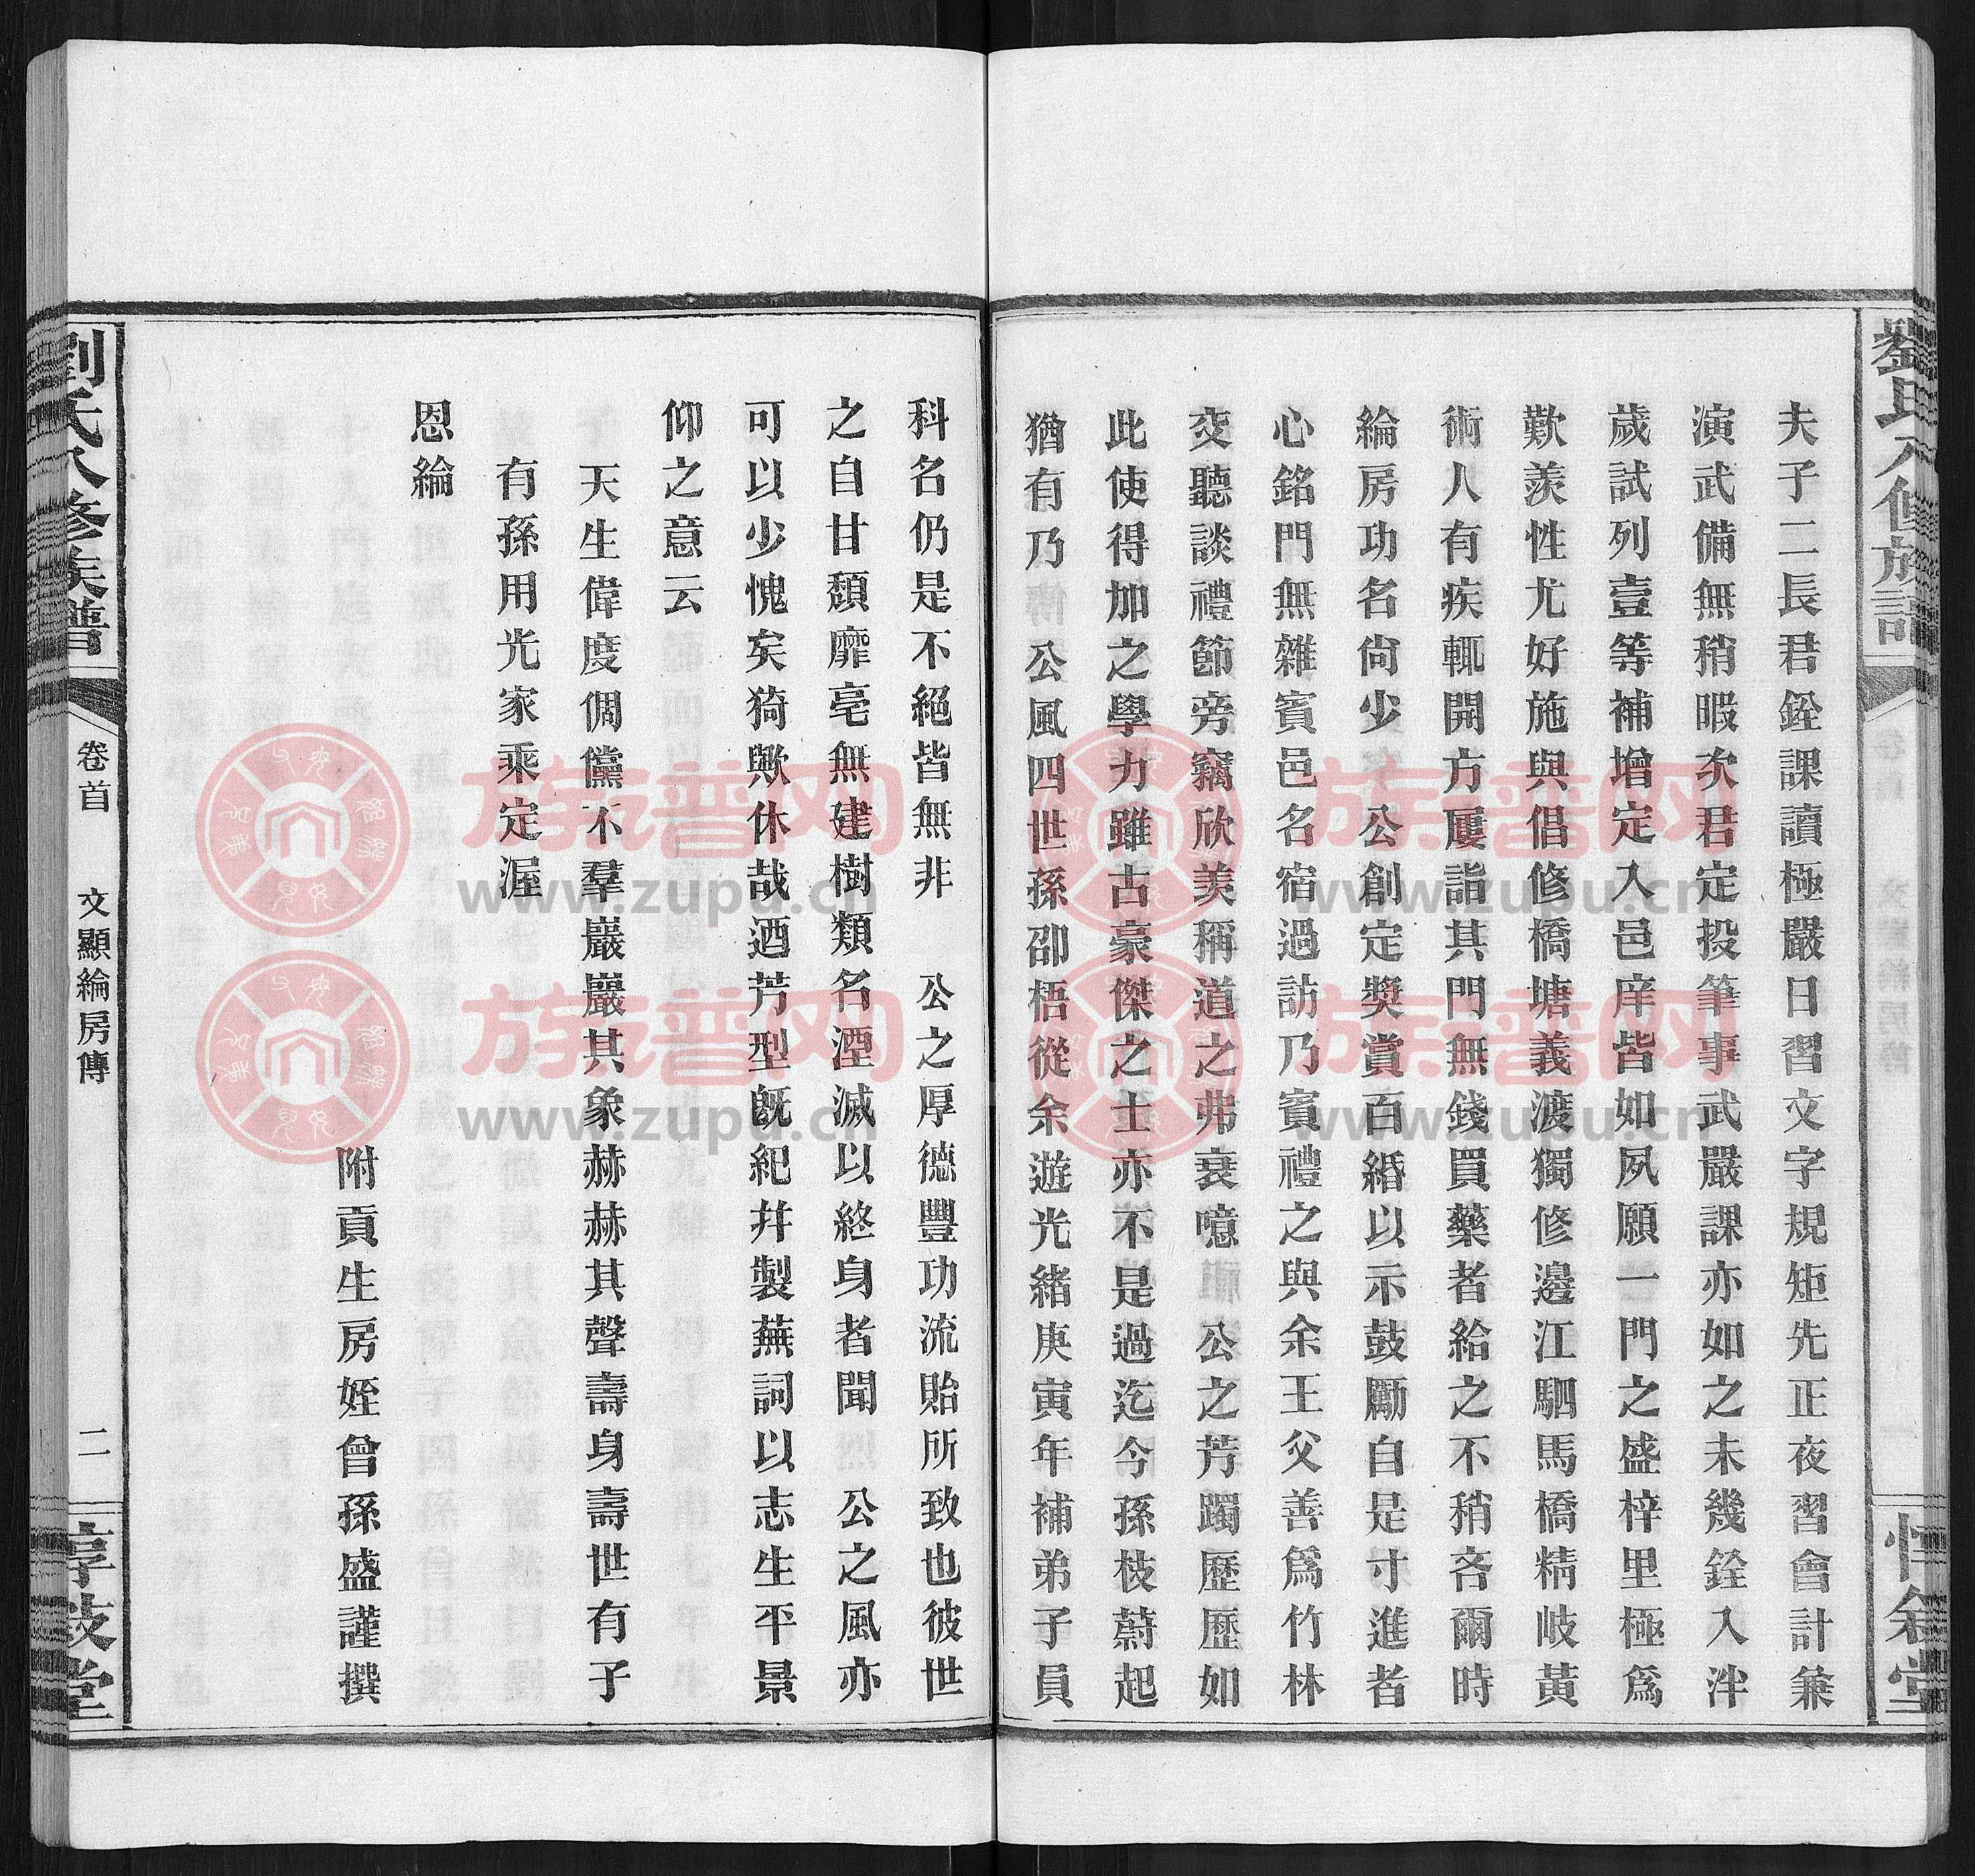 劉氏八修族譜
夫子二長君銓課讀極嚴日習文字規矩先正夜習會計兼
演武備無稍暇次君定投筆事武嚴課亦如之未幾銓入泮
歲試列壹等補增定入邑庠皆如夙願一門之盛梓里極爲
歎羨性尤好施與倡修橋塘義渡獨修邊江駟馬橋精岐黃
術人有疾輒開方屢詣其門無錢買藥者給之不稍吝爾時
綸房功名尙少 公創定奬賞百緡以示鼓勵自是寸進者
心銘門無雜賓邑名宿過訪乃賓禮之與余王父善爲竹林
交聽談禮節旁竊欣羨稱道之弗衰噫 公之芳躅歷歷如
此使得加之學力雖古豪傑之士亦不是過迄今孫枝蔚起
猶有乃 公風四世孫卲梧從余遊光緒庚寅年補弟子員
科名仍是不絕皆無非 公之厚德豐功流貽所致也彼世
之自甘頹靡毫無建樹類名湮滅以終身者聞 公之風亦
可以少愧矣猗歟休哉迺芳型旣紀幷製蕪詞以志生平景
仰之意云
天生偉度倜儻不羣巖巖其象赫赫其聲壽身壽世有子
有孫用光家乘定渥
恩綸
附貢生房姪曾孫盛謹撰
劉氏八修族譜
卷首
文顯綸房傳
二